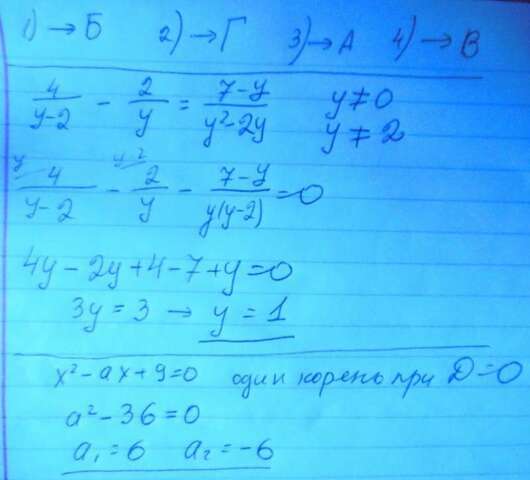 1) → Б 2) → Г 3) → А 4) → В
4/(y-2) - 2/y = (7-y)/(y²-2y) y ≠ 0
y ≠ 2
y 4/(y-2) - y-2 2/y - (7-y)/(y(y-2)) = 0
4y - 2y + 4 - 7 + y = 0
3y = 3 → y = 1
x² - ax + 9 = 0 один корень при D = 0
a² - 36 = 0
a₁ = 6 a₂ = -6